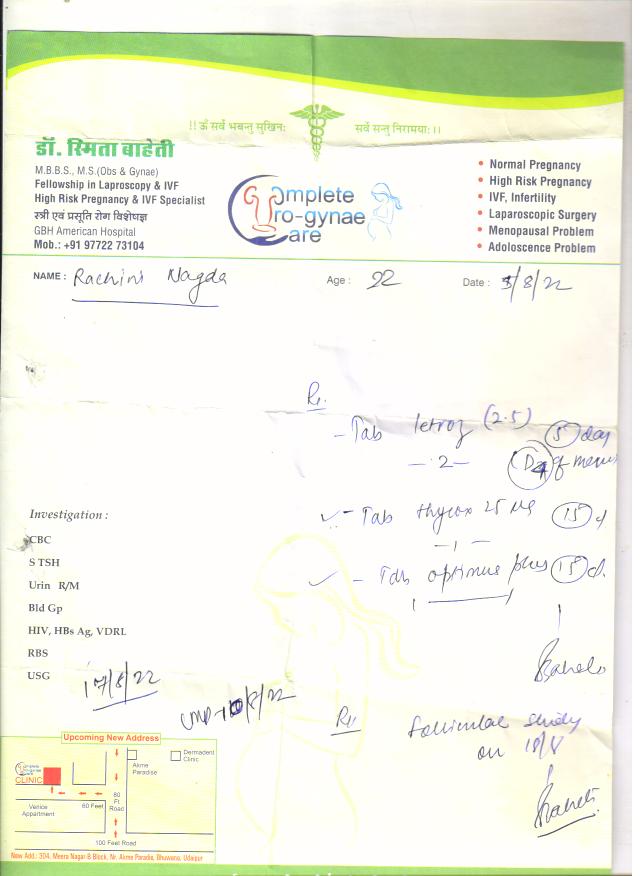 !! ॐ सर्वे भवन्तु सुखिनः सर्वे सन्तु निरामयाः !!
डॉ. स्मिता बाहेती
M.B.B.S., M.S.(Obs & Gynae)
Fellowship in Laproscopy & IVF
High Risk Pregnancy & IVF Specialist
स्त्री एवं प्रसूति रोग विशेषज्ञ
GBH American Hospital
Mob.: +91 97722 73104
Complete
Uro-gynae
Care
• Normal Pregnancy
• High Risk Pregnancy
• IVF, Infertility
• Laparoscopic Surgery
• Menopausal Problem
• Adoloscence Problem
NAME : Rachini Nagda Age : 22 Date : /8/22
Rx
- Tab letroz (2.5) 5 day
- 2 - D4 of menses
- Tab thyrox 25 µg 15 d
- 1 -
- Tab optimus plus 15 d
Investigation :
CBC
S TSH
Urin R/M
Bld Gp
HIV, HBs Ag, VDRL
RBS
USG
17/8/22
LMP - 10/8/22
Baheti
Rx Follicular study
on 18/8
Baheti
Upcoming New Address
Complete
Uro-gynae
Care
CLINIC
Akme
Paradise
Dermadent
Clinic
Venice
Appartment
60 Feet
80
Ft
Road
100 Feet Road
New Add.: 304, Meera Nagar B Block, Nr. Akme Paradie, Bhuwana, Udaipur